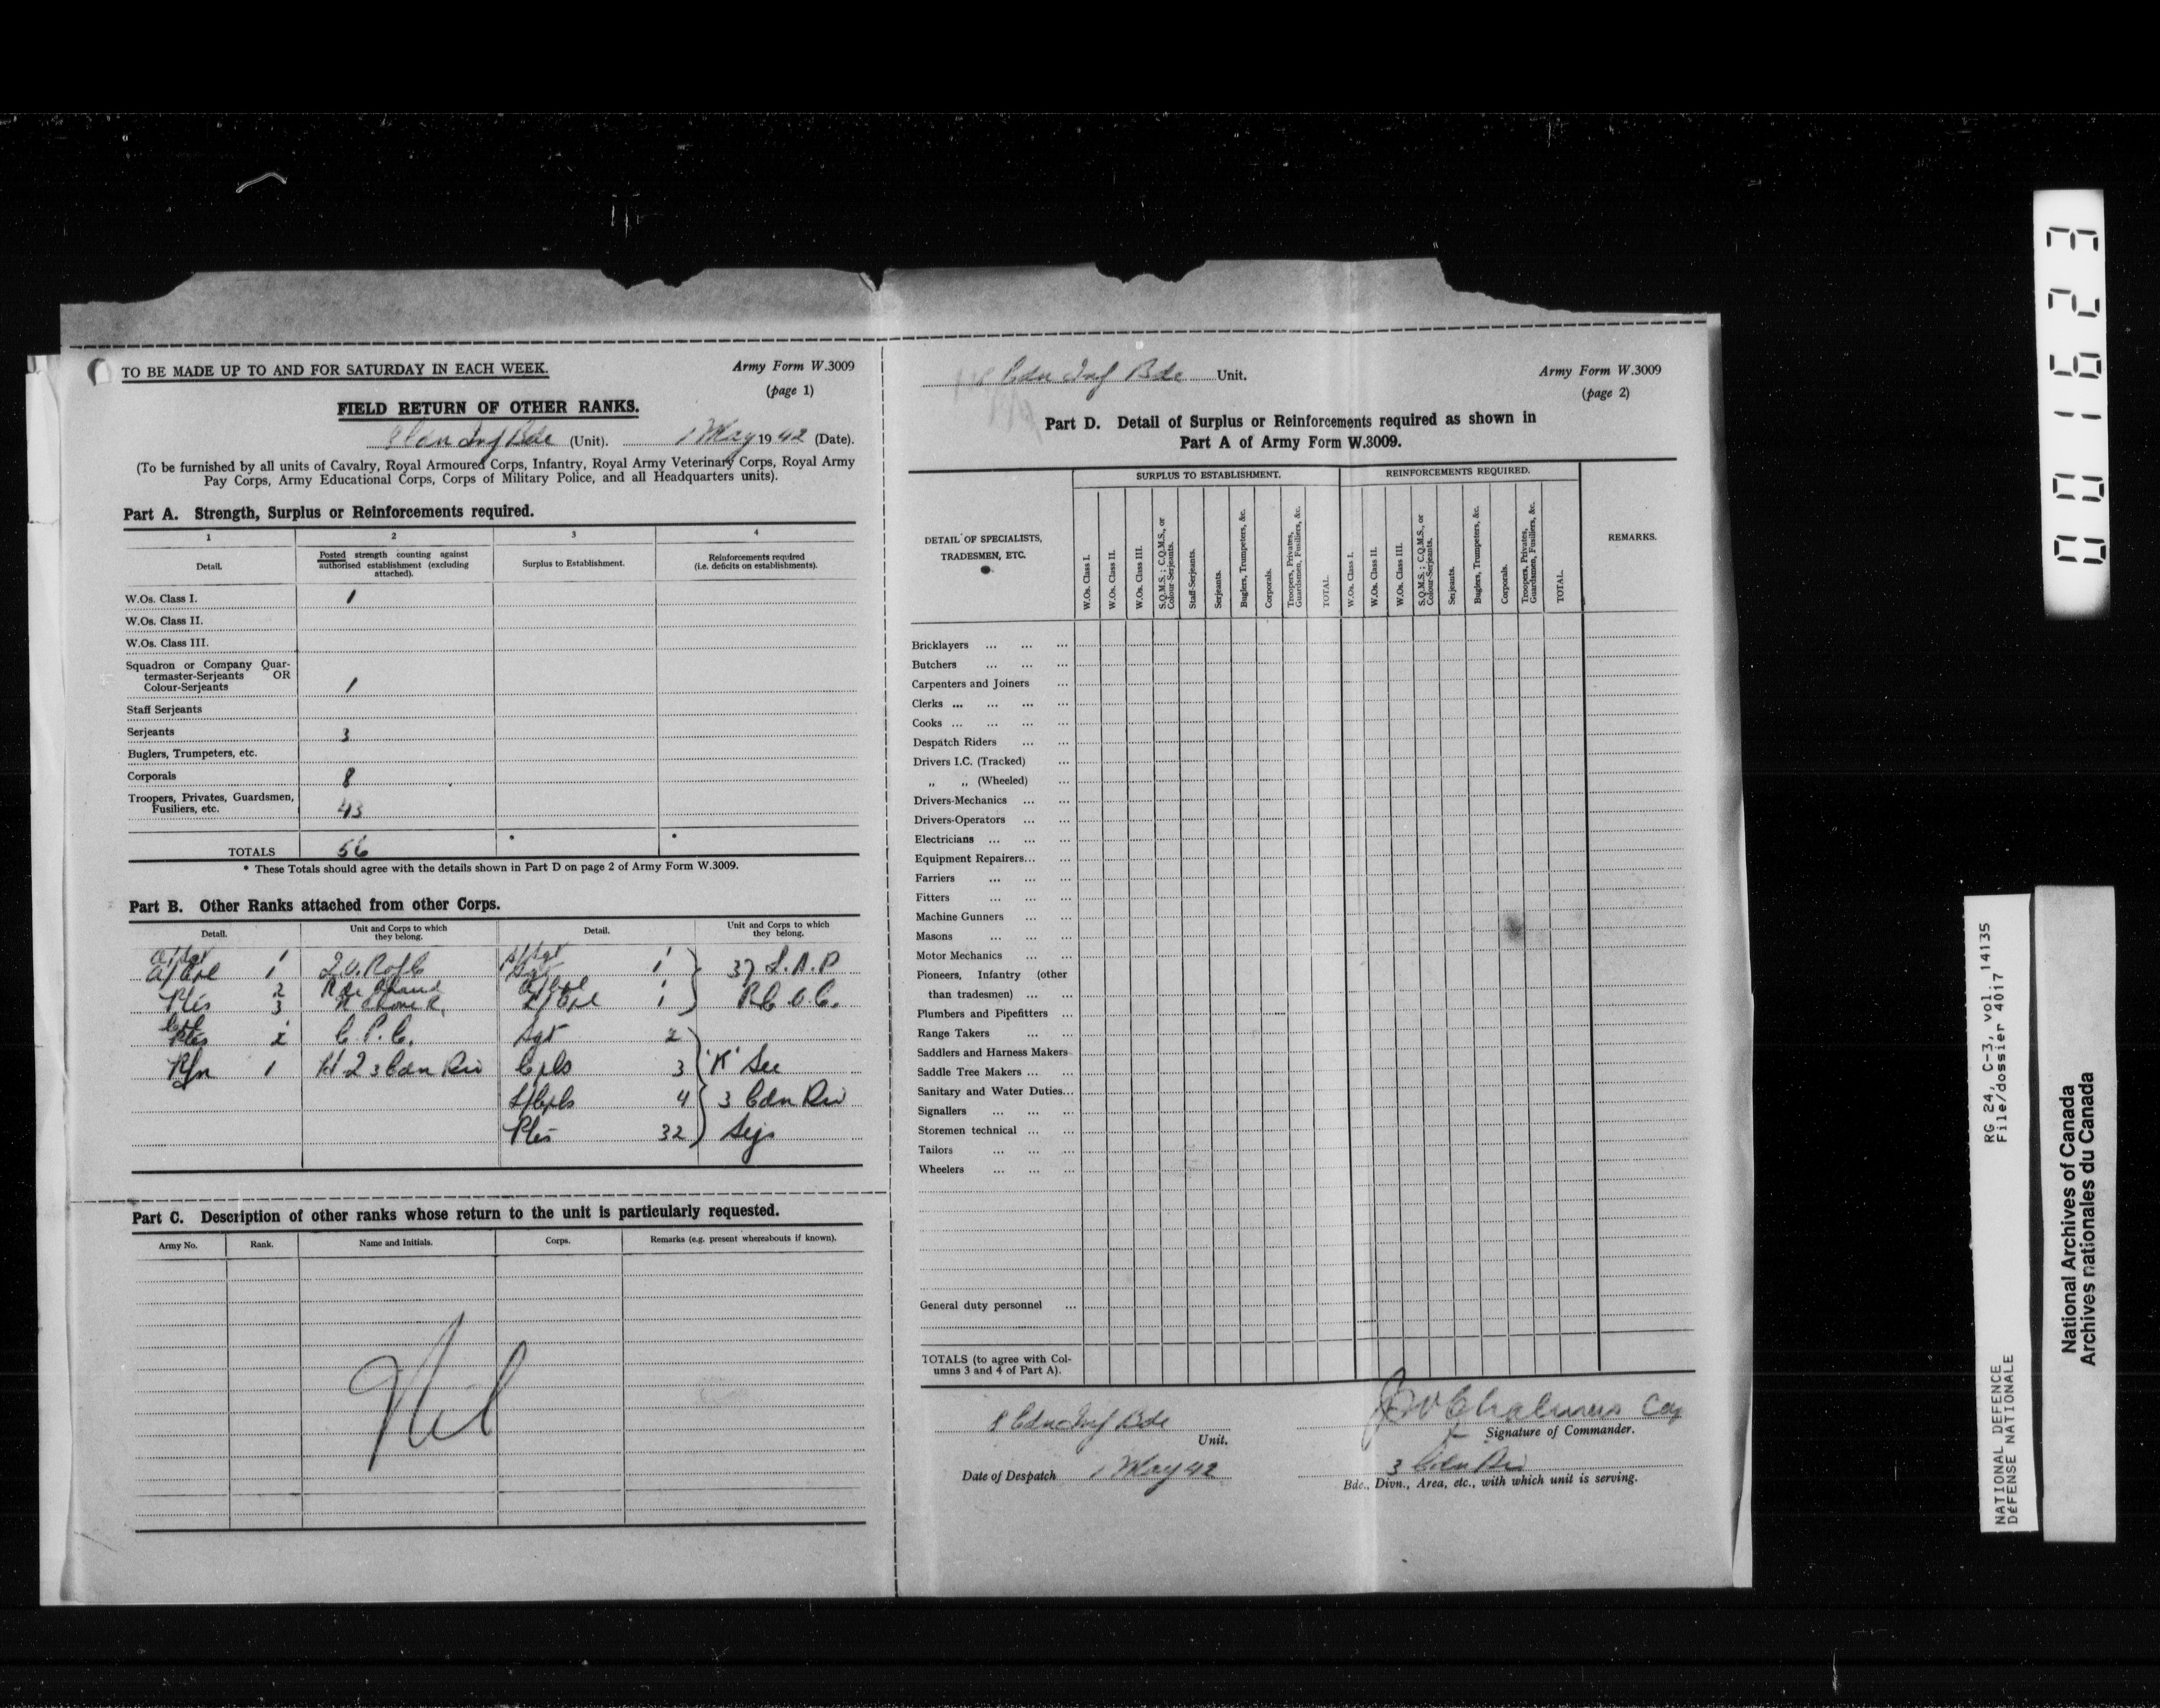 TO BE MADE UP TO AND FOR SATURDAY IN EACH WEEK.
Army Form W.3009
(page 1)
FIELD RETURN OF OTHER RANKS.
8 Cdn Inf Bde (Unit). 1 May 1942 (Date).
(To be furnished by all units of Cavalry, Royal Armoured Corps, Infantry, Royal Army Veterinary Corps, Royal Army
Pay Corps, Army Educational Corps, Corps of Military Police, and all Headquarters units).
Part A. Strength, Surplus or Reinforcements required.
1 2 3 4
Detail.
Posted strength counting against
authorised establishment (excluding
attached).
Surplus to Establishment.
Reinforcements required
(i.e. deficits on establishments).
W.Os. Class I. 1
W.Os. Class II.
W.Os. Class III.
Squadron or Company Quar-
termaster-Serjeants OR
Colour-Serjeants 1
Staff Serjeants
Serjeants 3
Buglers, Trumpeters, etc.
Corporals 8
Troopers, Privates, Guardsmen,
Fusiliers, etc. 43
TOTALS 56 * *
* These Totals should agree with the details shown in Part D on page 2 of Army Form W.3009.
Part B. Other Ranks attached from other Corps.
Detail.
Unit and Corps to which
they belong.
Detail.
Unit and Corps to which
they belong.
A/Sgt 1
A/Cpl 1 Q.O.R of C 1 37 L.A.D
2 R de Chaud
Ptes 3 N Shore R. L/Cpl 1 R.C.O.C.
Ptes 2 C.P.C. Sgt 2
Rfn 1 HQ 3 Cdn Div Cpls 3 'K' Sec
L/Cpls 4 3 Cdn Div
Ptes 32 Sigs
Part C. Description of other ranks whose return to the unit is particularly requested.
Army No. Rank. Name and Initials. Corps. Remarks (e.g. present whereabouts if known).
Nil
8 Cdn Inf Bde Unit.
Army Form W.3009
(page 2)
Part D. Detail of Surplus or Reinforcements required as shown in
Part A of Army Form W.3009.
DETAIL OF SPECIALISTS,
TRADESMEN, ETC.
SURPLUS TO ESTABLISHMENT.
W.Os. Class I.
W.Os. Class II.
W.Os. Class III.
S.Q.M.S.; C.Q.M.S., or
Colour-Serjeants.
Staff-Serjeants.
Serjeants.
Buglers, Trumpeters, &c.
Corporals.
Troopers, Privates,
Guardsmen, Fusiliers, &c.
TOTAL.
REINFORCEMENTS REQUIRED.
W.Os. Class I.
W.Os. Class II.
W.Os. Class III.
S.Q.M.S.; C.Q.M.S., or
Colour-Serjeants.
Serjeants.
Buglers, Trumpeters, &c.
Corporals.
Troopers, Privates,
Guardsmen, Fusiliers, &c.
TOTAL.
REMARKS.
Bricklayers ... ... ...
Butchers ... ... ...
Carpenters and Joiners ...
Clerks ... ... ... ...
Cooks ... ... ... ...
Despatch Riders ... ...
Drivers I.C. (Tracked) ...
„ „ (Wheeled) ...
Drivers-Mechanics ... ...
Drivers-Operators ... ...
Electricians ... ... ...
Equipment Repairers... ...
Farriers ... ... ...
Fitters ... ... ...
Machine Gunners ... ...
Masons ... ... ...
Motor Mechanics ... ...
Pioneers, Infantry (other
than tradesmen) ... ...
Plumbers and Pipefitters ...
Range Takers ... ...
Saddlers and Harness Makers
Saddle Tree Makers ... ...
Sanitary and Water Duties...
Signallers ... ... ...
Storemen technical ... ...
Tailors ... ... ...
Wheelers ... ... ...
General duty personnel ...
TOTALS (to agree with Col-
umns 3 and 4 of Part A).
8 Cdn Inf Bde
Unit.
Chalmers Cap
Signature of Commander.
Date of Despatch 1 May 42
3 Cdn Div
Bde., Divn., Area, etc., with which unit is serving.
001623
RG 24, C-3, vol. 14135
File/dossier 4017
NATIONAL DEFENCE
DÉFENSE NATIONALE
National Archives of Canada
Archives nationales du Canada